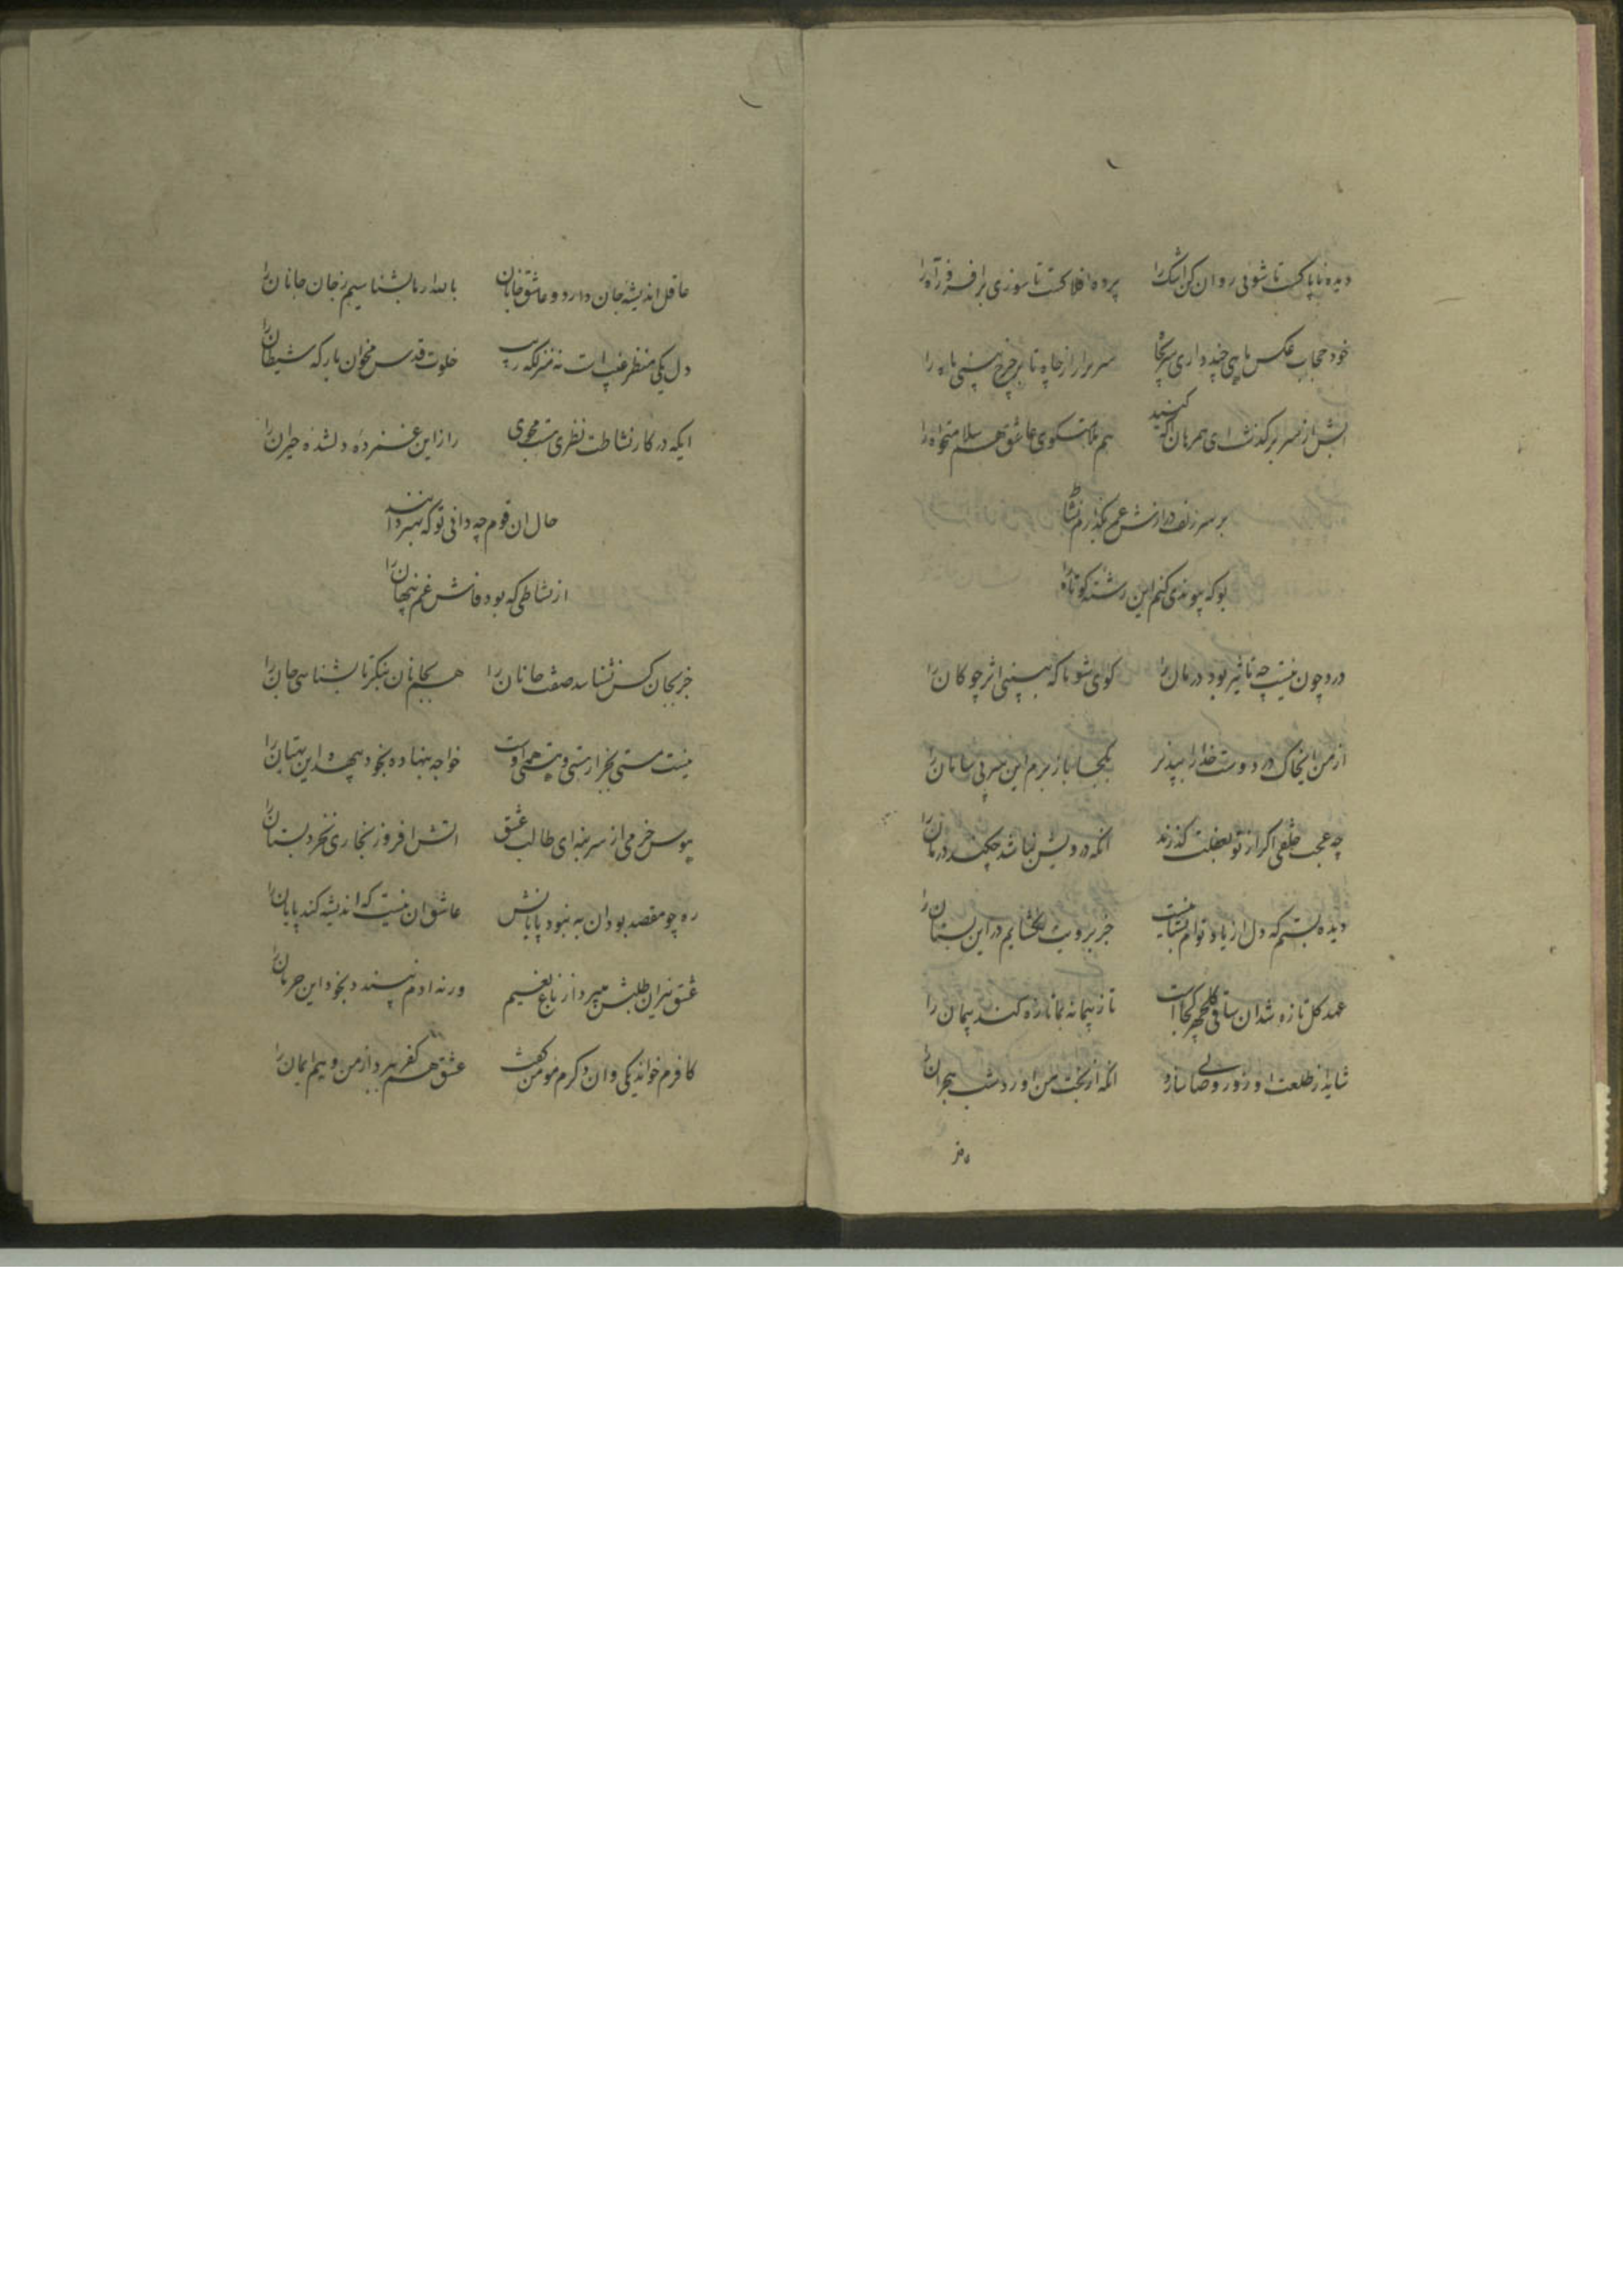 دیده ناپاکست تا شوئی روان کن اشک را پرده افلاکست تا سوزی برافروز آه را
خود حجاب عکس ماهی چند داری سر بچا سر برار از چاه تا بر چرخ بینی ماه را
آتش از سر برگذشت ای همرهان آگه کنید هم ملامتگوی عاشق هم سلامتخواه را
بر سر زلف درازش عمر بگذارم نشاط
بو که پیوندی کنم این رشته کوتاه را
درد چون نیست چه تاثیر بود درمان را گوی شو تا که ببینی اثر چوگان را
از من ای خاک در دوست خدا را بپذیر بکجا باز برم این سر بی سامان را
چه عجب خلقی اگر از تو بغفلت گذرند انکه دردیش نباشد چکند درمان را
دیده بستم که دل از یاد توام نشکیبد جز برویت نگشایم در این بستان را
عهد گل تازه شد ان ساقی گلچهر کجاست تا ز پیمانه بما تازه کند پیمان را
شاید از طلعت او روز وصالی سازد انکه از بخت من اورد شب هجران را
عاقل اندیشه جان دارد و عاشق جانان بالله ار ما بشناسیم ز جان جانان را
دل یکی منظر غیب است نه منزلگه ریب خلوت قدس مخوان بارگه شیطان را
ایکه در کار نشاطت نظری هست مجوی راز این غمزده دلشده حیران را
حال ان قوم چه دانی تو که نهردانند
از نشاطی که بود فاش غم پنهان را
جز بجان کس نشناسد صفت جانان را هم بجانان بنگر تا بشناسی جان را
نیست هستی بجز از هستی و هستی همه اوست خواجه بنهاده بخود بیهده این بهتان را
بوس خرمی از سر بنه ای طالب عشق آتش افروز بخاری نخرد بستان را
ره چو مقصد بود ان به نبود پایانش عاشق ان نیست که اندیشه کند پایان را
عشق نیران طلبش میبرد از باغ نعیم ورنه ادم نپسندد بخود این حرمان را
کافرم خواند یکی وان دگرم مومن گفت عشق هم کفر ببرد از من و هم ایمان را